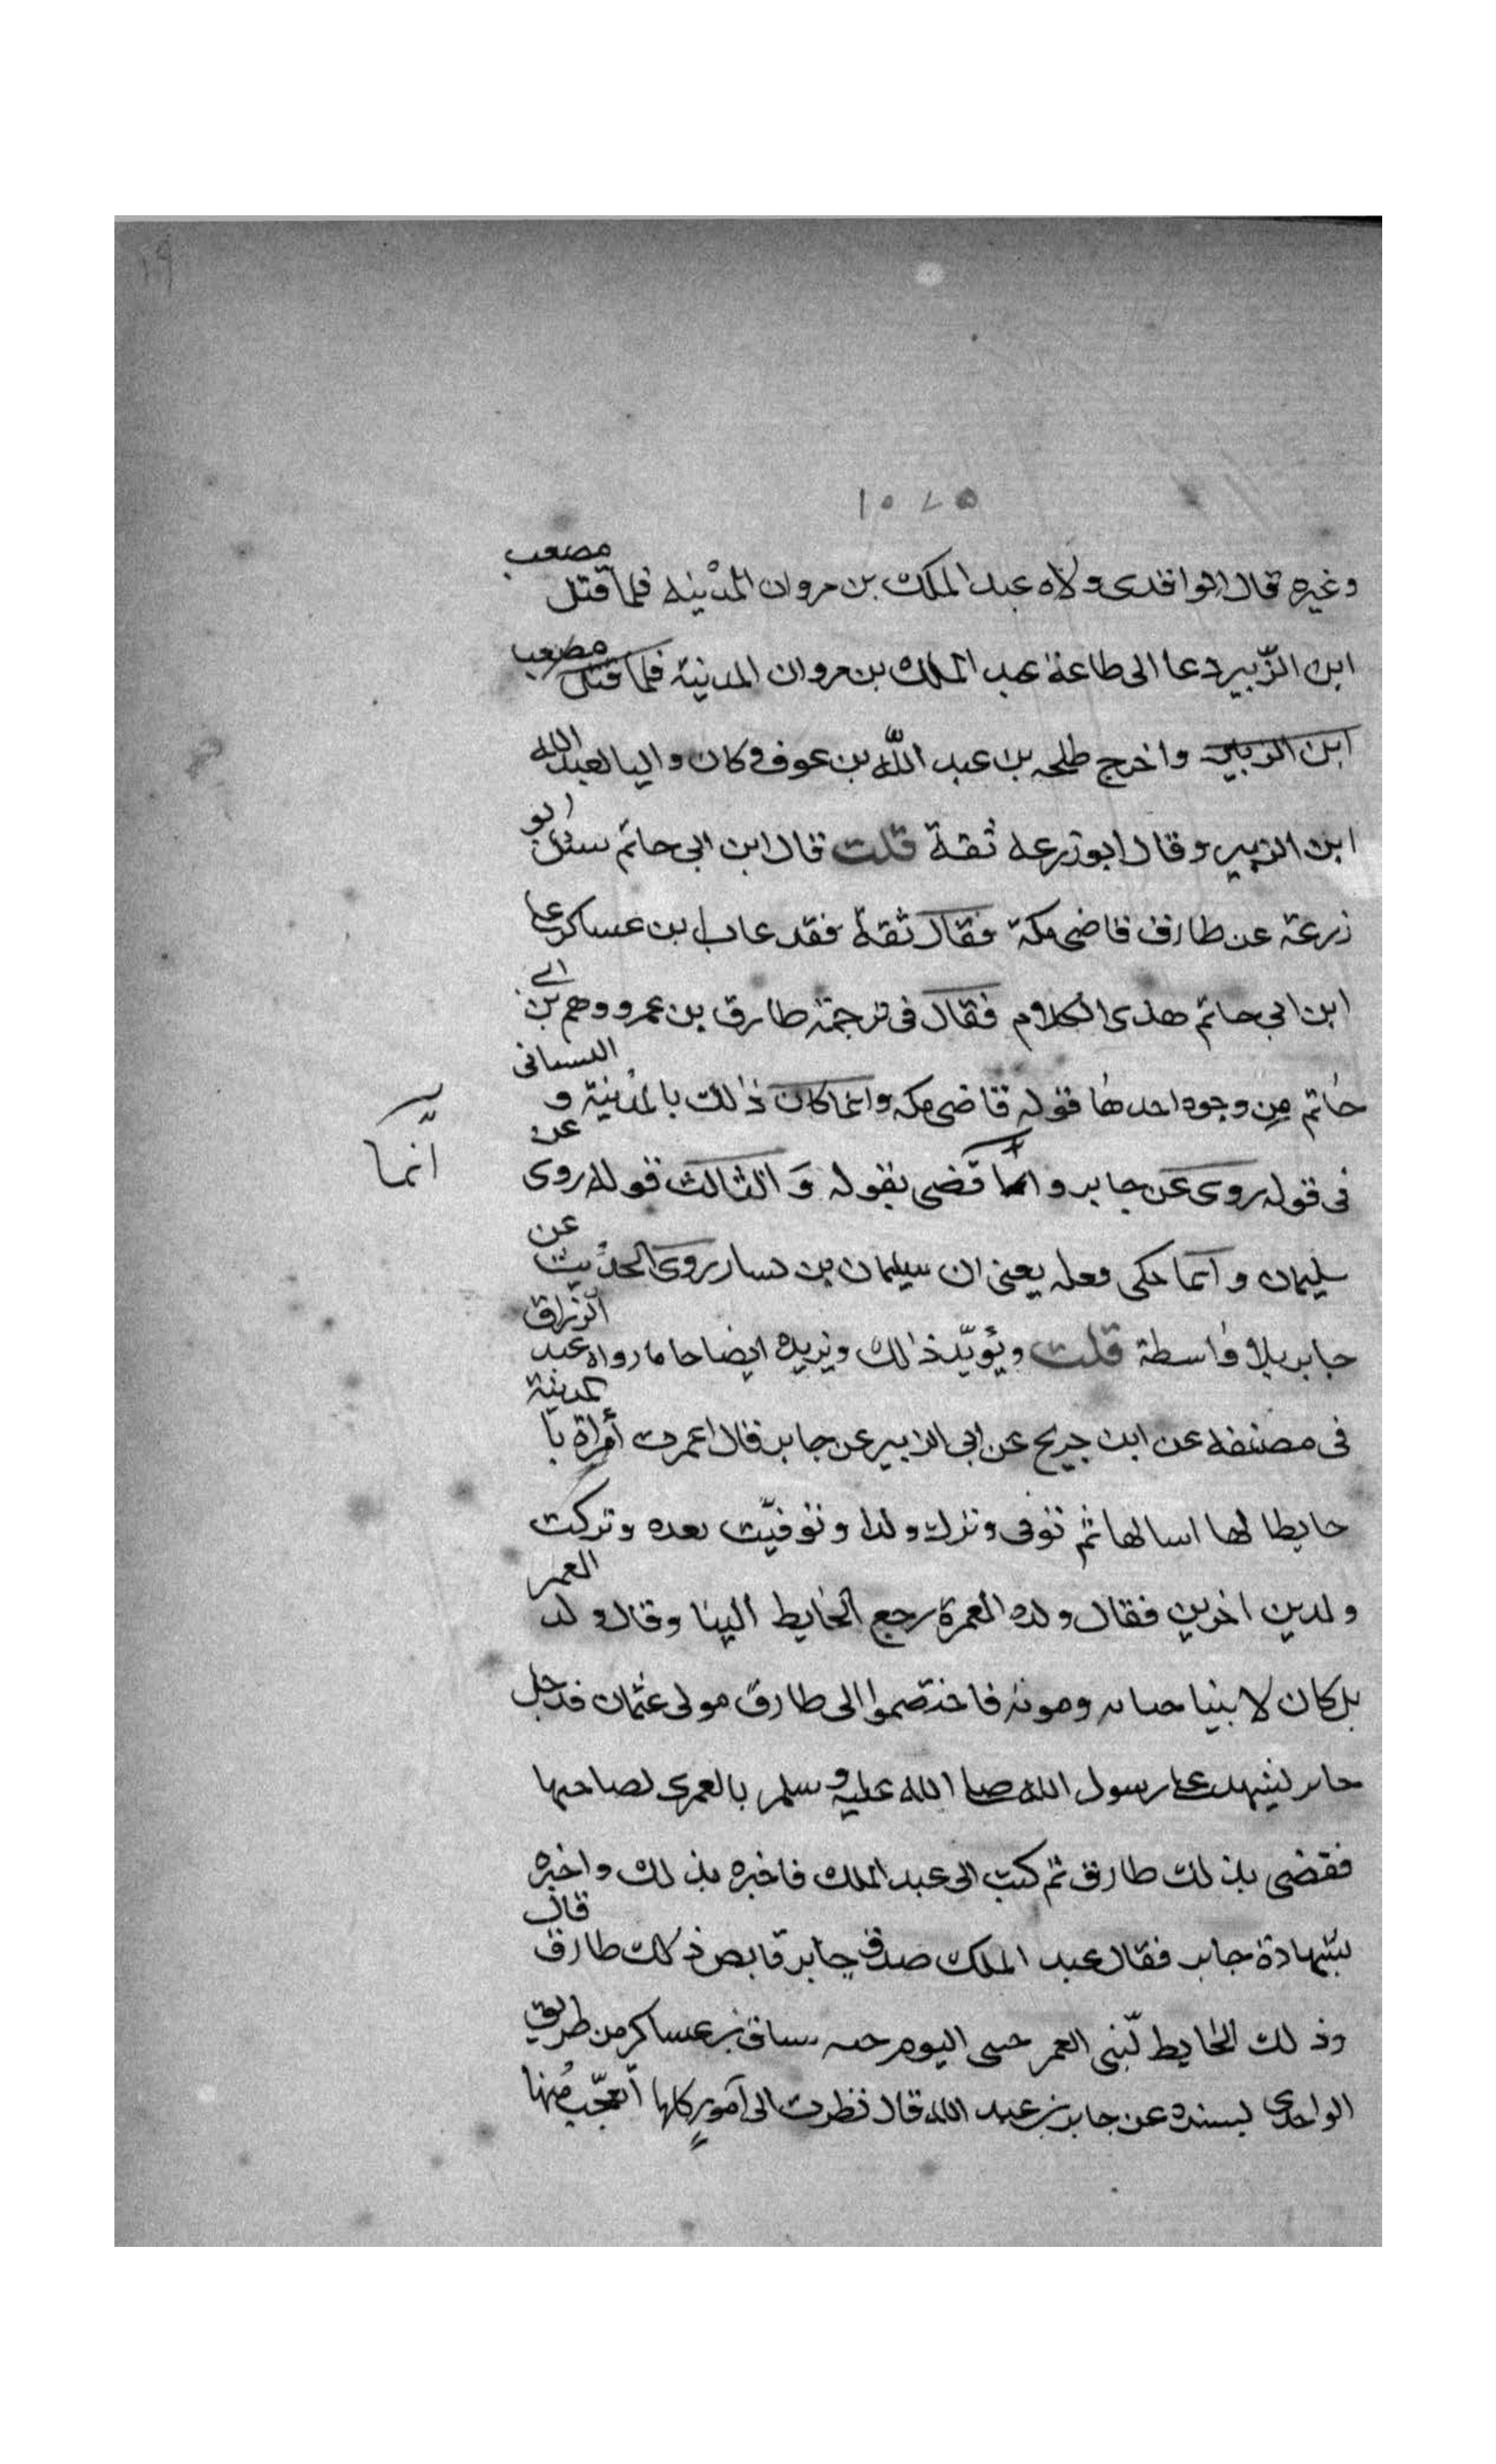 ١٩
١٥٧٥
وغيره قال الواقدى ولاه عبد الملك بن مروان المدينه فلما قتل مصعب
ابن الزبير دعا الى طاعة عبد الملك بن مروان المدينة فلما قتل مصعب
ابن الزبير واخرج طلحه بن عبد الله بن عوف وكان واليا لعبد الله
ابن الزبير وقال ابوزرعه ثقة قلت قال ابن ابى حاتم سئل ابو
زرعة عن طارق قاضى مكة فقال ثقة فقد عاب ابن عساكر على
ابن ابى حاتم هذى الكلام فقال فى ترجمة طارق بن عمرو وهم بن ابى
حاتم من وجوه احدها قوله قاضى مكه وانما كان ذلك بالمدينة و الثانى
فى قوله روى عن جابر وانما قضى بقوله وَ الثالث قوله روى عن
انّما
سليمان وانما حكى فعله يعنى ان سليمان بن يسار روى الحديث عن
جابر بلا واسطة قلت ويؤيّد ذالك ويزيده ايضاحا ما رواه عبد الرزاق
فى مصنفه عن ابن جريج عن ابى الزبير عن جابر قال اعمرت أمراة با لمدينة
حايطا لها ابنا لها ثم توفى وترك ولدا وتوفيّت بعده وتركت
ولدين اخرين فقال ولد العمرة رجع الحايط الينا وقال ولد العمر
بل كان لابينا حياته وموته فاختصموا الى طارق مولى عثمان فدخل
جابر ليشهد على رسول الله صلى الله عليه وسلم بالعمرى لصاحبها
فقضى بذلك طارق ثم كتب الى عبد الملك فاخبره بذلك واخبره
بشهادة جابر فقال عبد الملك صدق جابر ذلك طارق قال
وذلك الحايط لبنى العمر حتى اليوم ساق بن عساكر من طريق
الواحدى بسنده عن جابر بن عبد الله قال نظرت الى آمورٍ كلها أتعجّب منها